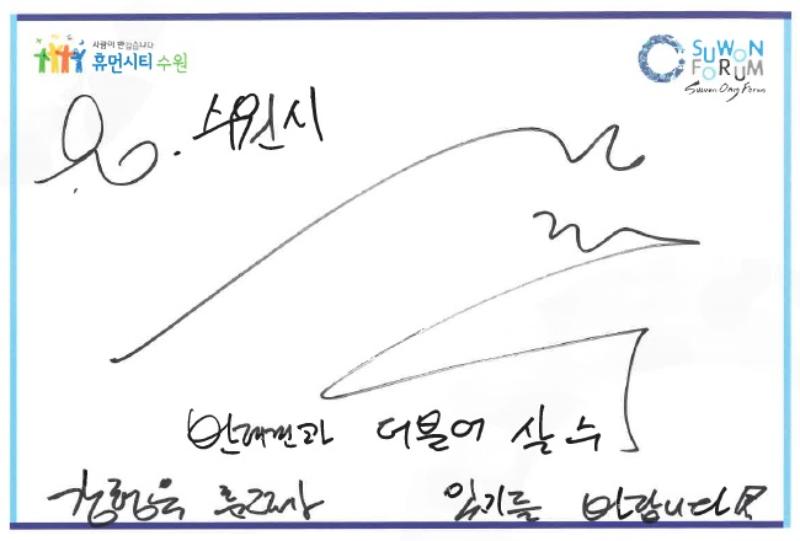 사람이 반갑습니다
휴먼시티 수원
SUWON
FORUM
Suwon Ong Forum
수원시
반려견과 더불어 살 수
강형욱 훈련사 있기를 바랍니다